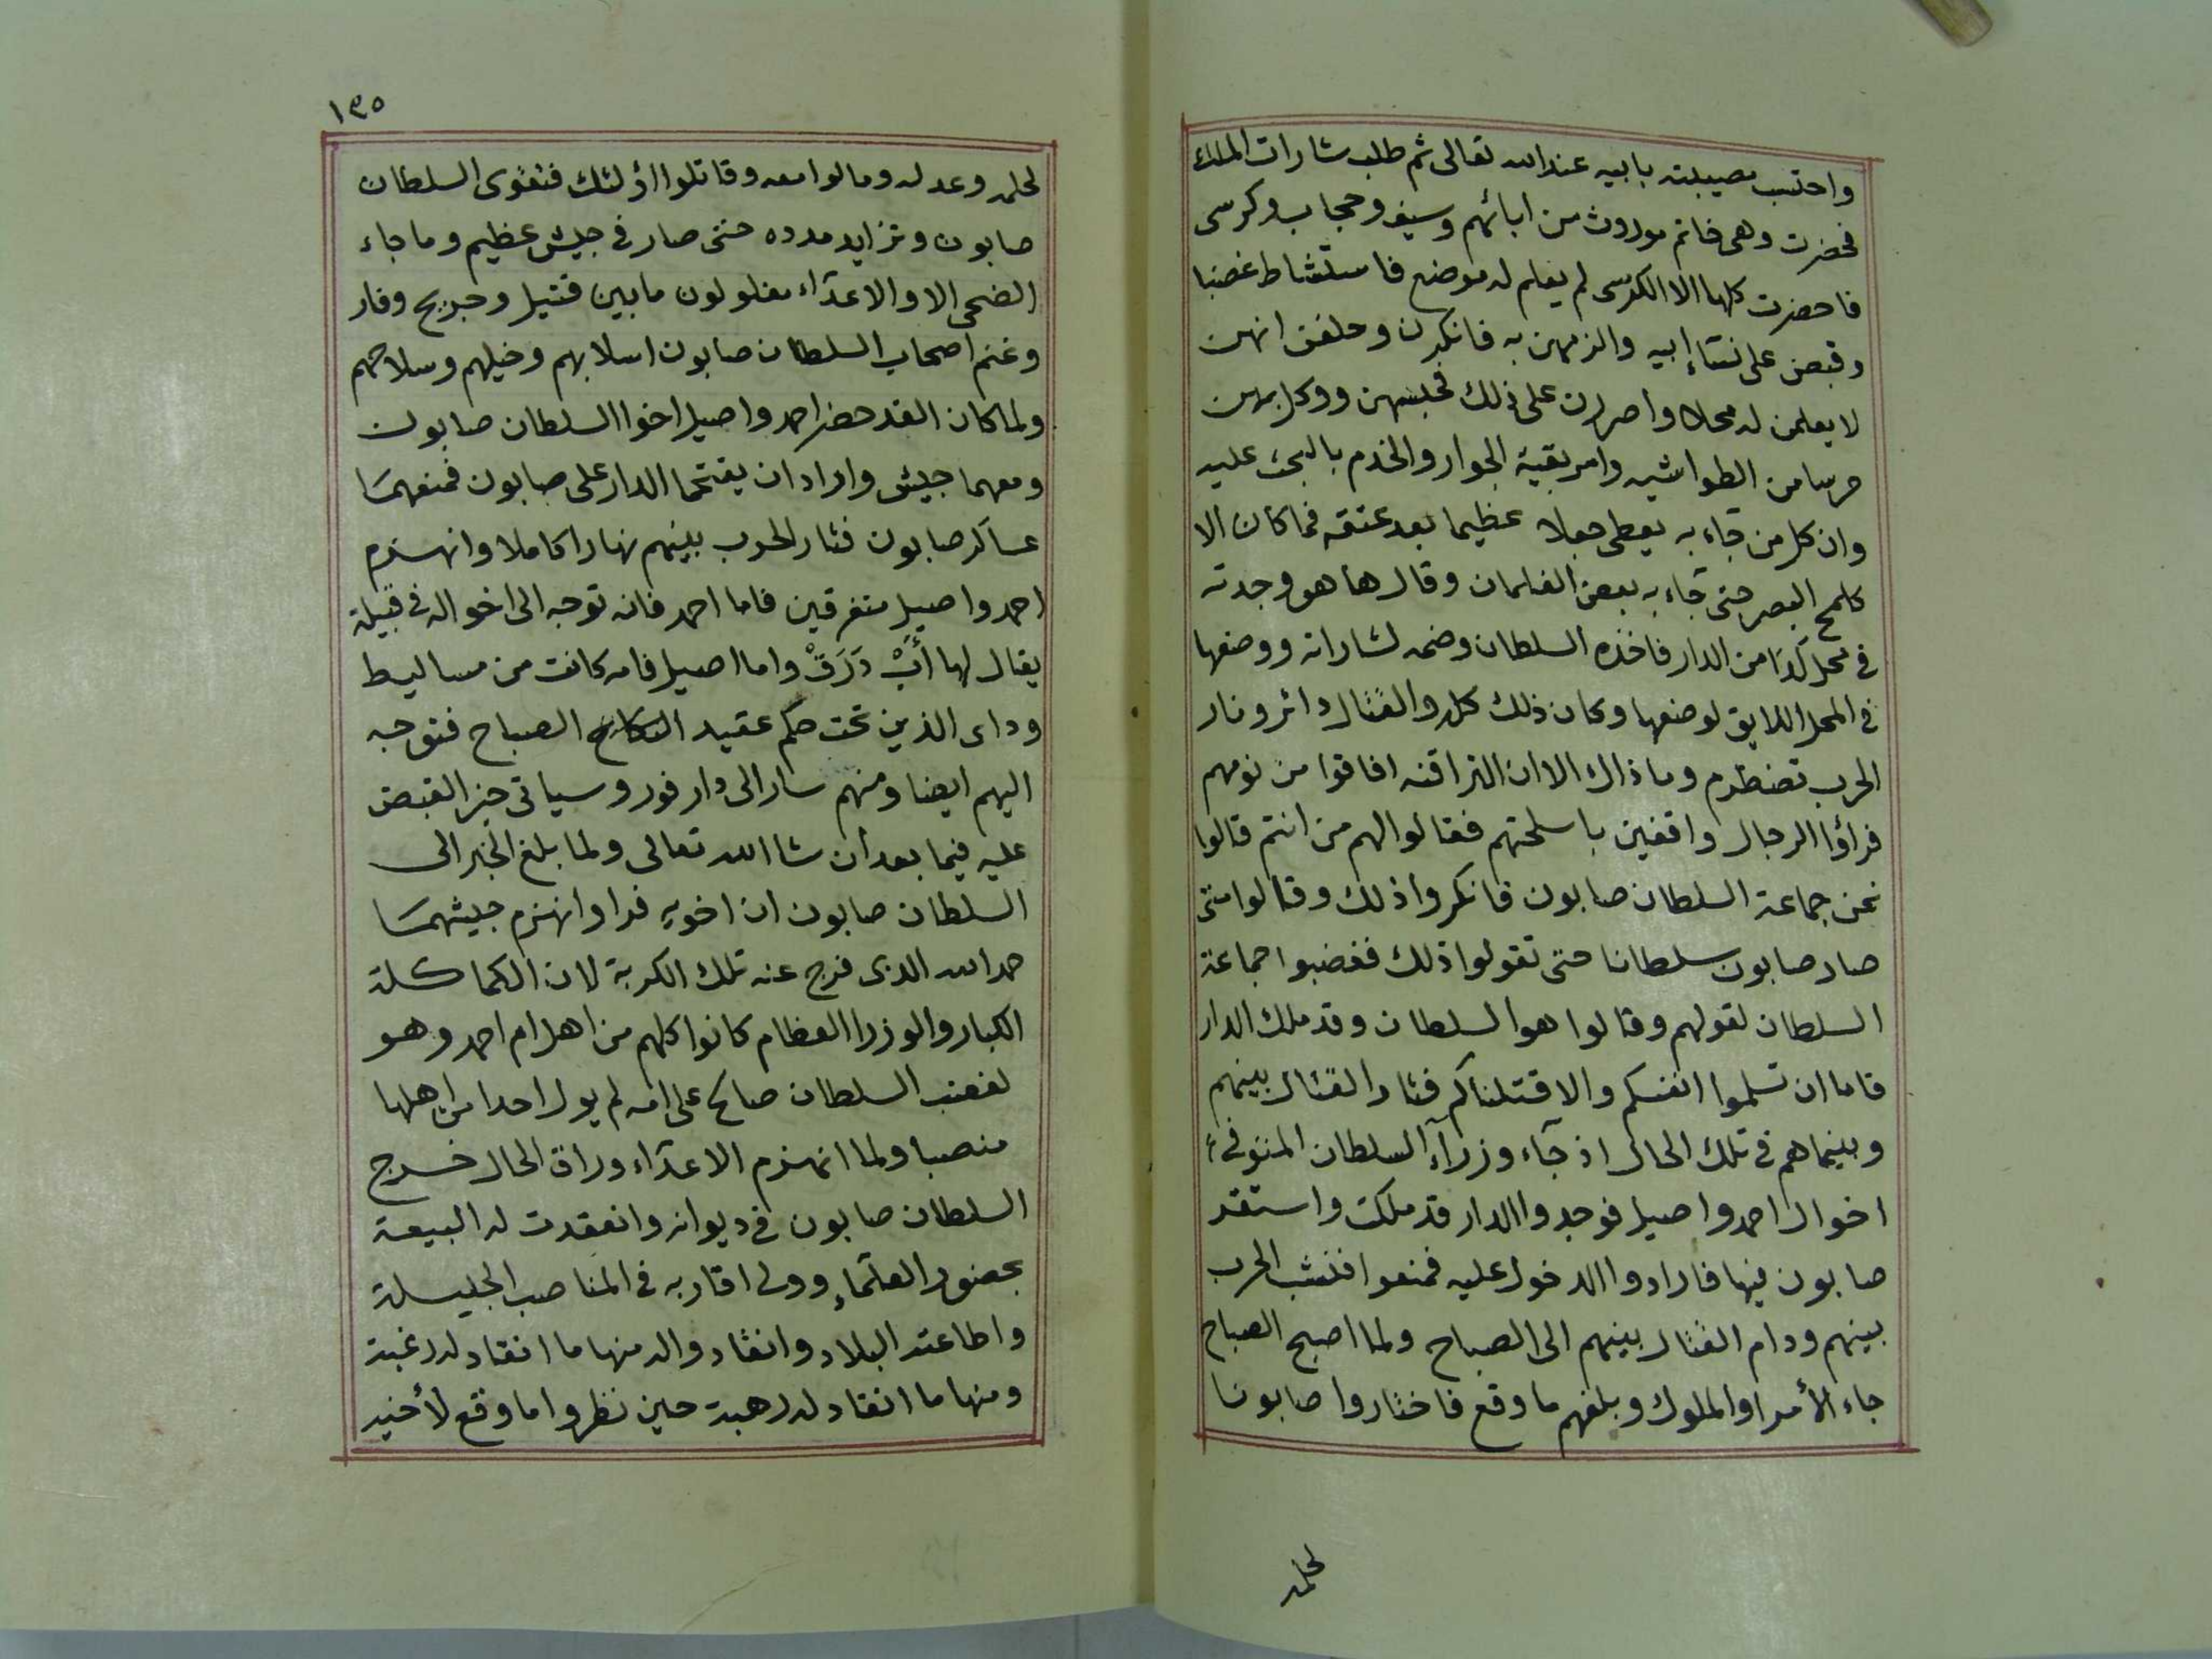 واحتسب مصيبته بابيه عند الله تعالى ثم طلب شارات الملك
فحضرت وهى خاتم موروث من ابائهم وسيف وحجاب وكرسى
فاحضرت كلها الا الكرسى لم يعلم له موضع فاستشاط غضبا
وقبض على نساء ابيه والزمهن به فانكرن وحلفن انهن
لا يعلمن له محلا واصررن على ذلك فحبسهن ووكل بهن
حرسا من الطواشيه وامر بقية الجوار والخدم بالبحث عليه
وان كل من جاء به يعطى جعلا عظيما بعد عتقه فما كان الا
كلمح البصر حتى جاء به بعض الغلمان وقال ها هو وجدته
فى محل كذا من الدار فاخذه السلطان وضمه لشاراته ووضعها
فى المحل اللايق لوضعها وكان ذلك كله والقتال دائر ونار
الحرب تضطرم وما ذاك الا ان التراقنه افاقوا من نومهم
فرأوا الرجال واقفين باسلحتهم فقالوا لهم من انتم قالوا
نحن جماعة السلطان صابون فانكروا ذلك وقالوا متى
صار صابون سلطانا حتى تقولوا ذلك فغضبوا جماعة
السلطان لقولهم وقالوا هو السلطان وقد ملك الدار
فاما ان تسلموا انفسكم والا قتلناكم فثار القتال بينهم
وبينما هم فى تلك الحال اذ جآء وزرآء السلطان المتوفى
اخوال احمد واصيل فوجدوا الدار قد ملكت واستقر
صابون فيها فارادوا الدخول عليه فمنعوا فنشب الحرب
بينهم ودام القتال بينهم الى الصباح ولما اصبح الصباح
جاء الأمرا والملوك وبلغهم ما وقع فاختاروا صابونا
لحلمه
١٣٥
لحلمه وعدله ومالوا معه وقاتلوا اؤلئك فتقوى السلطان
صابون وتزايد مدده حتى صار فى جيش عظيم وما جاء
الضحى الا والاعدآء مفلولون ما بين قتيل وجريح وفار
وغنم اصحاب السلطان صابون اسلابهم وخيلهم وسلاحهم
ولما كان الغد حضر احمد واصيل اخوا السلطان صابون
ومعهما جيش وارادا ان يقتحما الدار على صابون فمنعهما
عساكر صابون فثار الحرب بينهم نهارا كاملا وانهزم
احمد واصيل متفرقين فاما احمد فانه توجه الى اخواله فى قبيلة
يقال لها أَبْ دَرَقْ واما اصيل فامه كانت من مساليط
وداى الذين تحت حكم عقيد الصباح فتوجه
اليهم ايضا ومنهم سار الى دار فور وسياتى خبر القبض
عليه فيما بعد أن شا الله تعالى ولما بلغ الخبر الى
السلطان صابون ان اخويه فرا وانهزم جيشهما
حمد الله الذى فرج عنه تلك الكربة لان الكماكلة
الكبار والوزرا العظام كانوا كلهم من اهل ام احمد وهو
لغضب السلطان صالح على امه لم يول احدا من اهلها
منصبا ولما انهزم الاعدآء وراق الحال خرج
السلطان صابون فى ديوانه وانعقدت له البيعة
بحضور العلمآء وولى اقاربه فى المناصب الجليلة
واطاعته البلاد وانقادوا له منها ما انقاد له رغبة
ومنها ما انقاد له رهبة حين نظروا ما وقع لأخيه